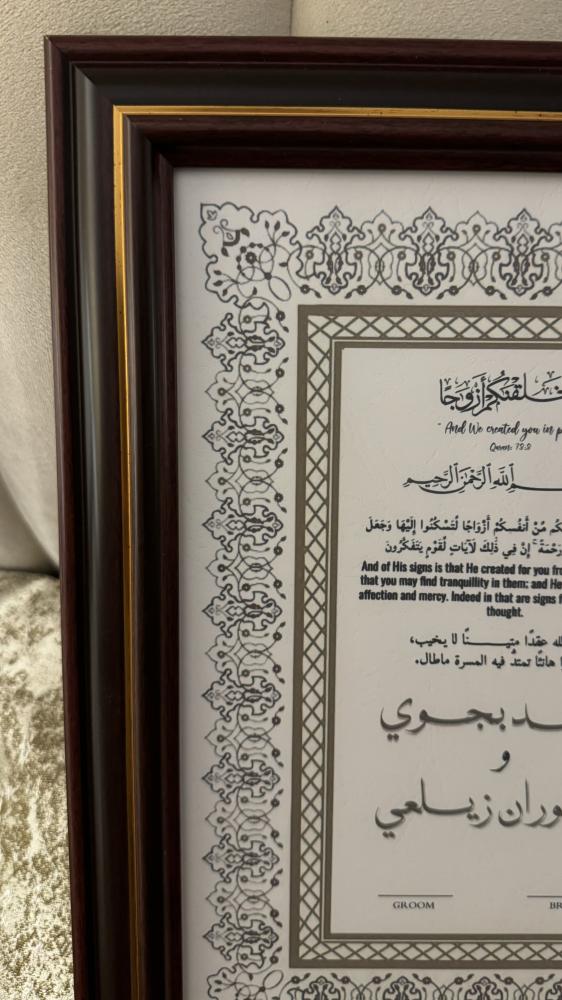 خلقنكم أزوجا
" And We created you in p
Quran: 78:8
الله الرحمن الرحيم
كُم مِّنْ أَنفُسِكُمْ أَزْوَاجًا لِّتَسْكُنُوا إِلَيْهَا وَجَعَلَ
رَحْمَةً ۚ إِنَّ فِي ذَٰلِكَ لَآيَاتٍ لِّقَوْمٍ يَتَفَكَّرُونَ
And of His signs is that He created for you fr
that you may find tranquillity in them; and He
affection and mercy. Indeed in that are signs f
thought.
عقدًا متينًا لا يخيب،
هانئا تمتدّ فيه المسرة ماطال.
د بجوي
و
وران زيلعي
GROOM
BR